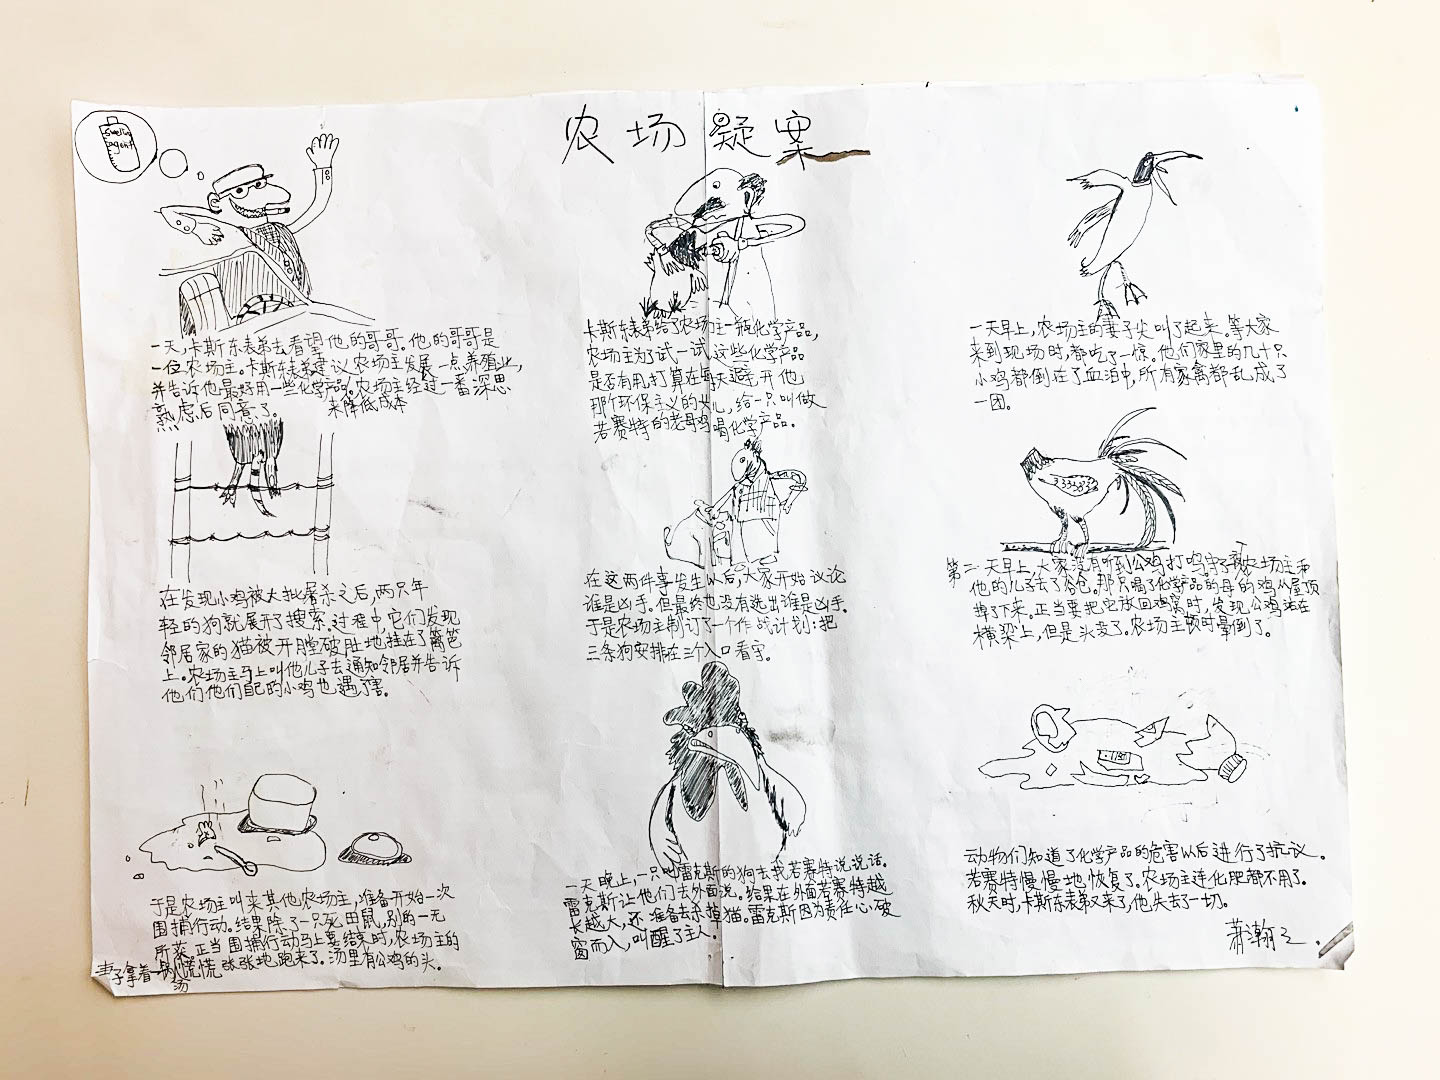 农场疑案
swelling
agent
一天,卡斯东表弟去看望他的哥哥。他的哥哥是
一位农场主。卡斯东表弟建议农场主发展一点养殖业,
并告诉他最好用一些化学产品。农场主经过一番深思
来降低成本
熟虑后同意了。
卡斯东表弟给了农场主一瓶化学产品,
农场主为了试一试这些化学产品
是否有用,打算在每天避开他
那个环保主义的女儿,给一只叫做
若赛特的老母鸡喝化学产品。
一天早上,农场主的妻子尖叫了起来。等大家
来到现场时,都吃了一惊。他们家里的几十只
小鸡都倒在了血泊中,所有家禽都乱成了
一团。
在发现小鸡被大批屠杀之后,两只年
轻的狗就展开了搜索。过程中,它们发现
邻居家的猫被开膛破肚地挂在了篱笆
上。农场主马上叫他儿子去通知邻居并告诉
他们他们自己的小鸡也遇了害。
在这两件事发生以后,大家开始议论
谁是凶手。但最终也没有选出谁是凶手。
于是农场主制订了一个作战计划:把
三条狗安排在三个入口看守。
第二天早上,大家没有听到公鸡打鸣,农场主和
他的儿子去了谷仓。那只喝了化学产品的母的鸡从屋顶
掉了下来。正当要把它放回鸡窝时,发现公鸡站在
横梁上,但是头没了。农场主顿时晕倒了。
于是农场主叫来其他农场主,准备开始一次
围捕行动。结果除了一只死田鼠,别的一无
所获。正当围捕行动马上要结束时,农场主的
妻子拿着一锅汤慌慌张张地跑来了。汤里有公鸡的头。
一天晚上,一只叫雷克斯的狗去找若赛特说说话。
雷克斯让他们去外面说。结果在外面若赛特越
长越大,还准备去杀掉猫。雷克斯因为责任心,破
窗而入,叫醒了主人。
动物们知道了化学产品的危害以后进行了抗议。
若赛特慢慢地恢复了。农场主连化肥都不用了。
秋天时,卡斯东表弟又来了,他失去了一切。